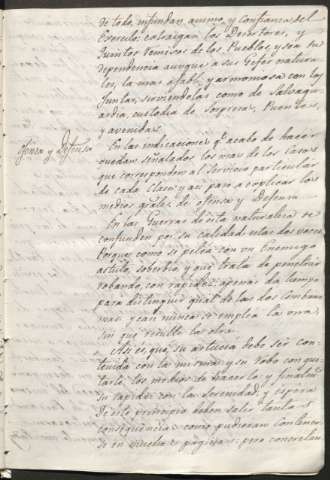 de todo, infundan animo, y confianza al
Exercito: extraigan los Desertores, y
Quintos remisos de los Pueblos, y sea su
dependencia aunque a sus Gefes natura-
les, la mas afable y armoniosa con las
Juntas, sirviendolas como de salvagu-
ardia, custodia de sorpresas, Puentes,
y avenidas.
Ofensa y Defensa
En las indicaciones q.e acabo de hacer
quedan señalados los mas de los casos
que corresponden al servicio particular
de cada clase; asi paso a explicar los
medios grales de ofensa y Defensa.
En las Guerras de esta naturaleza se
confunden por su calidad estas dos voces
Porque como se pelea con un Enemigo
activo, soberbio, y que trata de penetrar
robando, con rapidez, apenas da tiempo
para distinguir qual de las dos
mas, y casi nunca se emplea la una,
sin que resulte la otra.
Asi es, que su astucia debe ser con-
tenida con la misma; y su robo con qui-
tarle los medios de hacerlo, y
su rapidez con la serenidad; y
de este principio deben salir tantas
consequencias como pudieran contener-
se en muchas paginas: pero